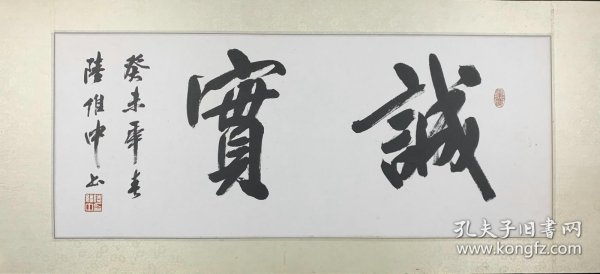 誠實
癸未年春
陸惟中書
孔夫子旧书网
www.kongfz.com